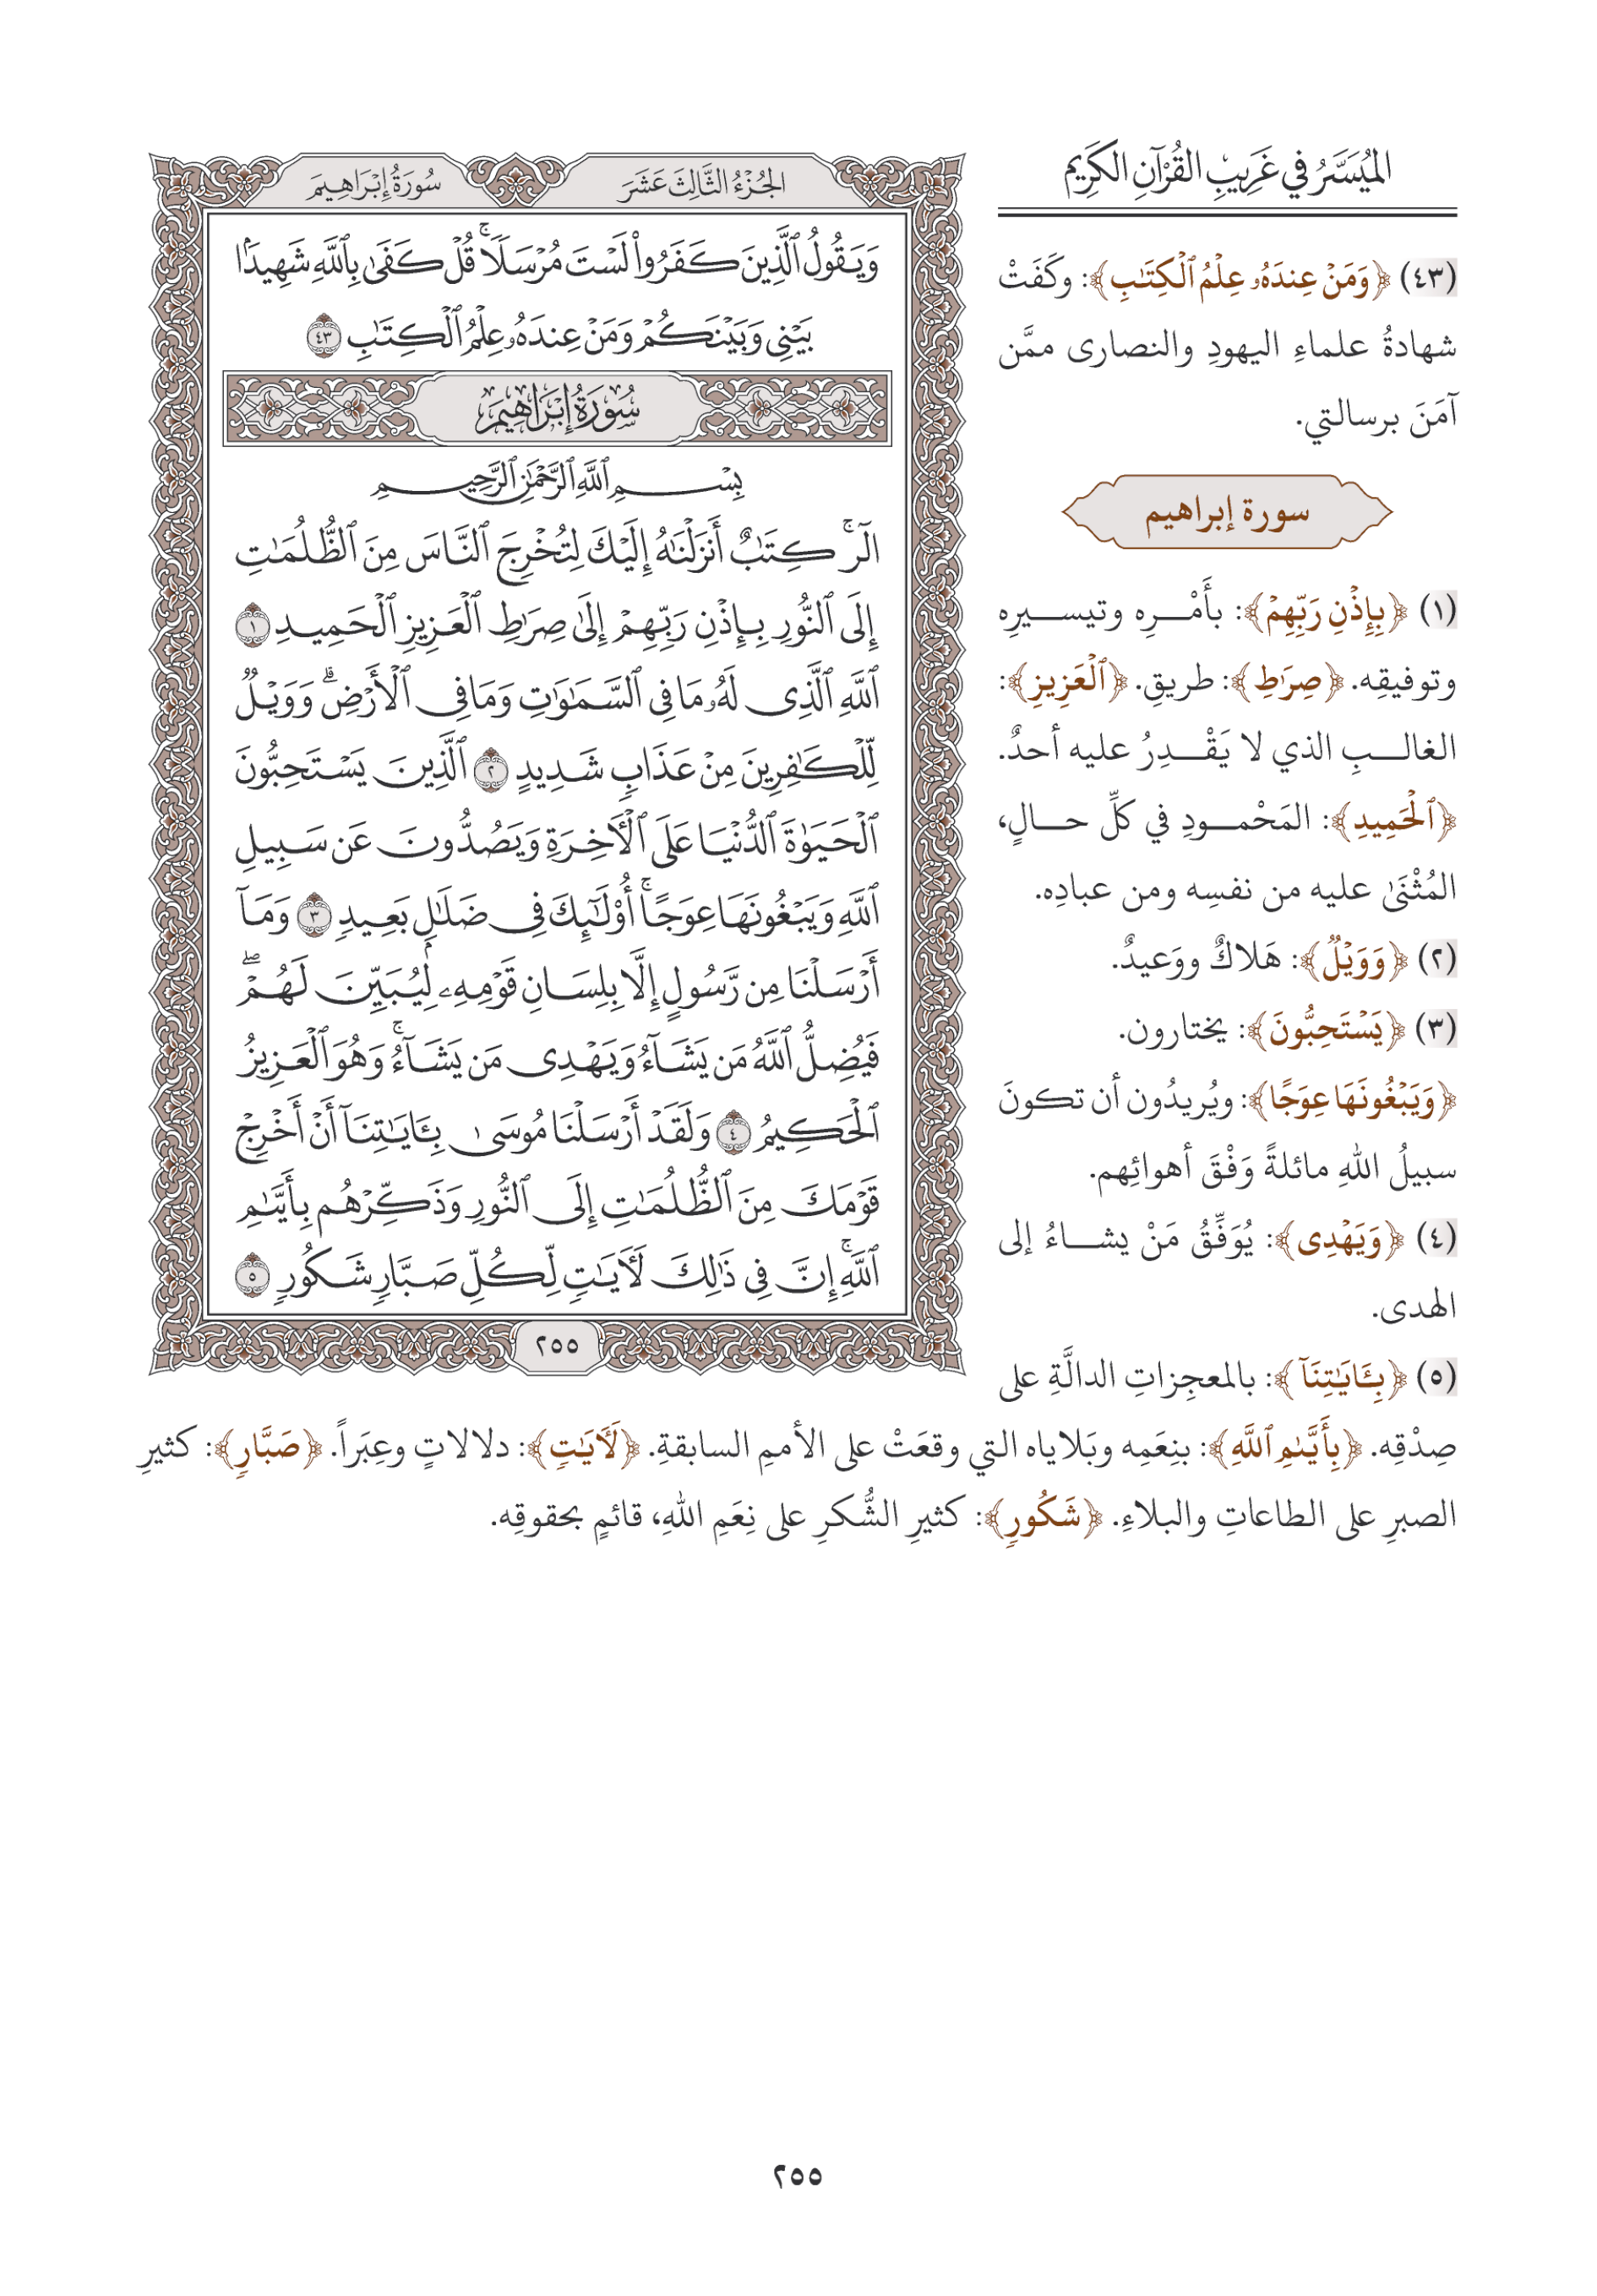 المُيَسَّرُ في غَرِيبِ القُرْآنِ الكَرِيم
(٤٣) ﴿وَمَنْ عِندَهُۥ عِلْمُ ٱلْكِتَٰبِ﴾: وكَفَتْ
شهادةُ علماءِ اليهودِ والنصارى ممَّن
آمَنَ برسالتي.
سورة إبراهيم
(١) ﴿بِإِذْنِ رَبِّهِمْ﴾: بأَمْرِه وتيسيرِه
وتوفيقِه. ﴿صِرَٰطِ﴾: طريقِ. ﴿ٱلْعَزِيزِ﴾:
الغالبِ الذي لا يَقْدِرُ عليه أحدٌ.
﴿ٱلْحَمِيدِ﴾: المَحْمودِ في كلِّ حالٍ،
المُثْنَىٰ عليه من نفسِه ومن عبادِه.
(٢) ﴿وَوَيْلٌ﴾: هَلاكٌ ووَعيدٌ.
(٣) ﴿يَسْتَحِبُّونَ﴾: يختارون.
﴿وَيَبْغُونَهَا عِوَجًا﴾: ويُريدُون أن تكونَ
سبيلُ اللهِ مائلةً وَفْقَ أهوائِهم.
(٤) ﴿وَيَهْدِى﴾: يُوَفِّقُ مَنْ يشاءُ إلى
الهدى.
(٥) ﴿بِـَٔايَٰتِنَآ﴾: بالمعجِزاتِ الدالَّةِ على
صِدْقِه. ﴿بِأَيَّىٰمِ ٱللَّهِ﴾: بنِعَمِه وبَلاياه التي وقعَتْ على الأممِ السابقةِ. ﴿لَأٓيَٰتٍ﴾: دلالاتٍ وعِبَراً. ﴿صَبَّارٍ﴾: كثيرِ
الصبرِ على الطاعاتِ والبلاءِ. ﴿شَكُورٍ﴾: كثيرِ الشُّكرِ على نِعَمِ اللهِ، قائمٍ بحقوقِه.
الجُزْءُ الثَّالِثَ عَشَرَ
سُورَةُ إِبْرَاهِيمَ
وَيَقُولُ ٱلَّذِينَ كَفَرُوا۟ لَسْتَ مُرْسَلًا ۚ قُلْ كَفَىٰ بِٱللَّهِ شَهِيدًۢا
بَيْنِى وَبَيْنَكُمْ وَمَنْ عِندَهُۥ عِلْمُ ٱلْكِتَٰبِ ٤٣
سُورَةُ إِبْرَاهِيمَ
بِسْمِ ٱللَّهِ ٱلرَّحْمَٰنِ ٱلرَّحِيمِ
الٓر ۚ كِتَٰبٌ أَنزَلْنَٰهُ إِلَيْكَ لِتُخْرِجَ ٱلنَّاسَ مِنَ ٱلظُّلُمَٰتِ
إِلَى ٱلنُّورِ بِإِذْنِ رَبِّهِمْ إِلَىٰ صِرَٰطِ ٱلْعَزِيزِ ٱلْحَمِيدِ ١
ٱللَّهِ ٱلَّذِى لَهُۥ مَا فِى ٱلسَّمَٰوَٰتِ وَمَا فِى ٱلْأَرْضِ ۗ وَوَيْلٌ
لِّلْكَٰفِرِينَ مِنْ عَذَابٍ شَدِيدٍ ٢ ٱلَّذِينَ يَسْتَحِبُّونَ
ٱلْحَيَوٰةَ ٱلدُّنْيَا عَلَى ٱلْأَخِرَةِ وَيَصُدُّونَ عَن سَبِيلِ
ٱللَّهِ وَيَبْغُونَهَا عِوَجًا ۚ أُو۟لَٰٓئِكَ فِى ضَلَٰلٍۭ بَعِيدٍ ٣ وَمَآ
أَرْسَلْنَا مِن رَّسُولٍ إِلَّا بِلِسَانِ قَوْمِهِۦ لِيُبَيِّنَ لَهُمْ ۖ
فَيُضِلُّ ٱللَّهُ مَن يَشَآءُ وَيَهْدِى مَن يَشَآءُ ۚ وَهُوَ ٱلْعَزِيزُ
ٱلْحَكِيمُ ٤ وَلَقَدْ أَرْسَلْنَا مُوسَىٰ بِـَٔايَٰتِنَآ أَنْ أَخْرِجْ
قَوْمَكَ مِنَ ٱلظُّلُمَٰتِ إِلَى ٱلنُّورِ وَذَكِّرْهُم بِأَيَّىٰمِ
ٱللَّهِ ۚ إِنَّ فِى ذَٰلِكَ لَأٓيَٰتٍ لِّكُلِّ صَبَّارٍ شَكُورٍ ٥
٢٥٥
٢٥٥